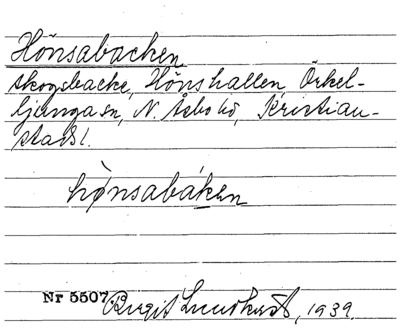 Hönsabacken
skogsbacke, Hönshallen, Örkel-
ljunga sn, N. Åsbo hd, Kristian-
stads l.
hǿnsabáken
Nr 5507. Birgit Lundkvist, 1939.